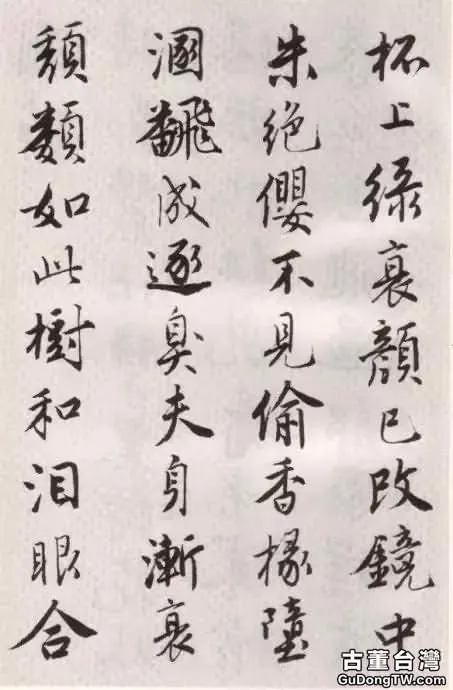 杯上綠衰顔已改鏡中
朱絶纓不見偷香掾墮
溷飜成逐臭夫身漸衰
頽類如此樹和泪眼合
古董台灣
GuDongTW.com